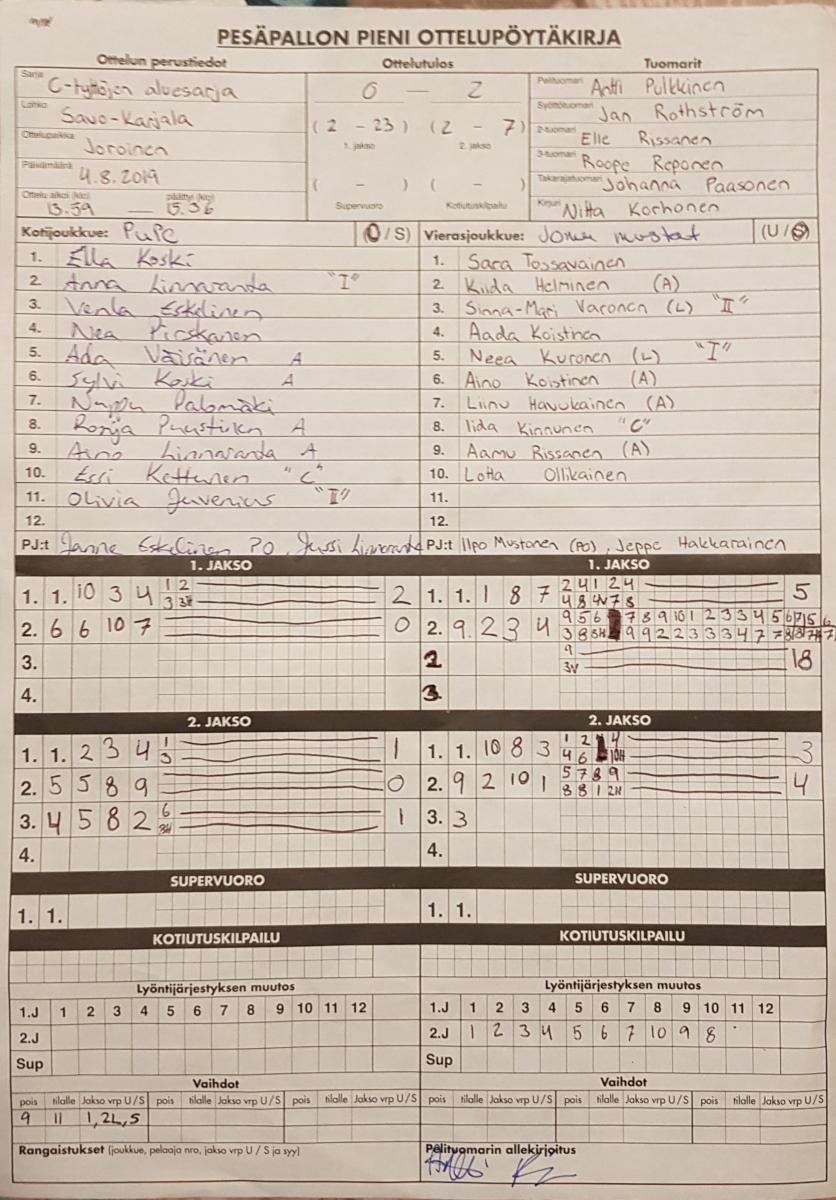 PESÄPALLON PIENI OTTELUPÖYTÄKIRJA
Ottelun perustiedot Ottelutulos Tuomarit
Sarja C-tyttöjen aluesarja
Lohko Savo-Karjala
Ottelupaikka Joroinen
Päivämäärä 4.8.2019
Ottelu alkoi (klo) päättyi (klo)
13.59 — 15.36
0 — 2
(2 - 23) (2 - 7)
1. jakso 2. jakso
( - ) ( - )
Supervuoro Kotiutuskilpailu
Pelituomari Antti Pulkkinen
Syöttötuomari Jan Rothström
2-tuomari Elle Rissanen
3-tuomari Roope Reponen
Takarajatuomari Johanna Paasonen
Kirjuri Niita Korhonen
Kotijoukkue: PuPe (U/S)
1. Ella Koski
2. Anna Linnaranta "I"
3. Venla Eskelinen
4. Nea Pirskanen
5. Ada Väisänen A
6. Sylvi Koski A
7. Nuppu Palomäki
8. Ronja Puustinen A
9. Aino Linnaranta A
10. Essi Kettunen "C"
11. Olivia Juvenius "II"
12.
PJ:t Janne Eskelinen PO, Jussi Linnaranta
Vierasjoukkue: Joma mustat (U/S)
1. Sara Tossavainen
2. Kiida Helminen (A)
3. Sinna-Mari Varonen (L) "II"
4. Aada Koistinen
5. Neea Kuronen (L) "I"
6. Aino Koistinen (A)
7. Liinu Havukainen (A)
8. Iida Kinnunen "C"
9. Aamu Rissanen (A)
10. Lotta Ollikainen
11.
12.
PJ:t Ilpo Mustonen (PO), Jeppe Hakkarainen
1. JAKSO
1. 1. 10 3 4 1 2 2
3
2. 6 6 10 7 0
3.
4.
1. JAKSO
1. 1. 1 8 7 2 4 1 2 4 5
4 8 4V 7 8
2. 9. 2 3 4 9 5 6 7 8 9 10 1 2 3 3 4 5
3 8 8H 9 9 2 2 3 3 3 4 7 7
2 9 18
3V
3.
2. JAKSO
1. 1. 2 3 4 1 1
3
2. 5 5 8 9 0
3. 4 5 8 2 6 1
3H
4.
2. JAKSO
1. 1. 10 8 3 1 2 4 3
4 6 10H
2. 9 2 10 1 5 7 8 9 4
8 8 1 2H
3. 3
4.
SUPERVUORO
1. 1.
SUPERVUORO
1. 1.
KOTIUTUSKILPAILU
KOTIUTUSKILPAILU
Lyöntijärjestyksen muutos
1.J 1 2 3 4 5 6 7 8 9 10 11 12
2.J
Sup
Lyöntijärjestyksen muutos
1.J 1 2 3 4 5 6 7 8 9 10 11 12
2.J 1 2 3 4 5 6 7 10 9 8
Sup
Vaihdot
pois tilalle Jakso vrp U/S pois tilalle Jakso vrp U/S pois tilalle Jakso vrp U/S
9 11 1,2L,S
Vaihdot
pois tilalle Jakso vrp U/S pois tilalle Jakso vrp U/S pois tilalle Jakso vrp U/S
Rangaistukset (joukkue, pelaaja nro, jakso vrp U / S ja syy)
Pelituomarin allekirjoitus